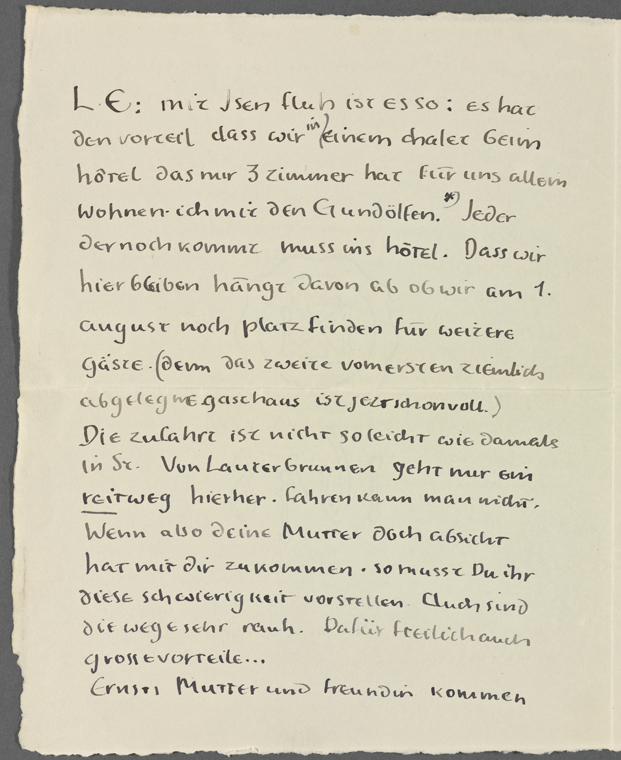 L. E: mit Isenfluh ist es so: es hat
den vorteil dass wir in) einem chalet beim
hôtel das nur 3 zimmer hat für uns allein
wohnen. ich mit den Gundölfen. *) Jeder
der noch kommt muss ins hôtel. Dass wir
hier bleiben hängt davon ab ob wir am 1.
august noch platz finden für weitere
gäste. (denn das zweite vom ersten ziemlich
abgelegne gasthaus ist jezt schon voll.)
Die zufahrt ist nicht so leicht wie damals
in St. Von Lauterbrunnen geht nur ein
reitweg hierher. fahren kann man nicht.
Wenn also deine Mutter doch absicht
hat mit dir zu kommen. so musst Du ihr
diese schwierigkeit vorstellen. Auch sind
die wege sehr rauh. Dafür freilich auch
grosse vorteile...
Ernsts Mutter und freundin kommen